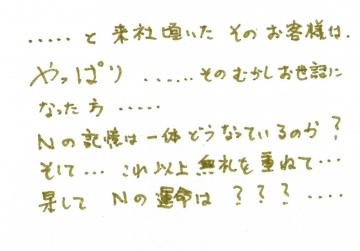 ..... と 来社頂いた その お客様は.
やっぱり ...... その むかし お世話に
なった 方 .....
Nの記憶は 一体 どうなっているのか ?
そして... これ以上 無礼を 重ねて...
果して Nの 運命は ? ? ? ....